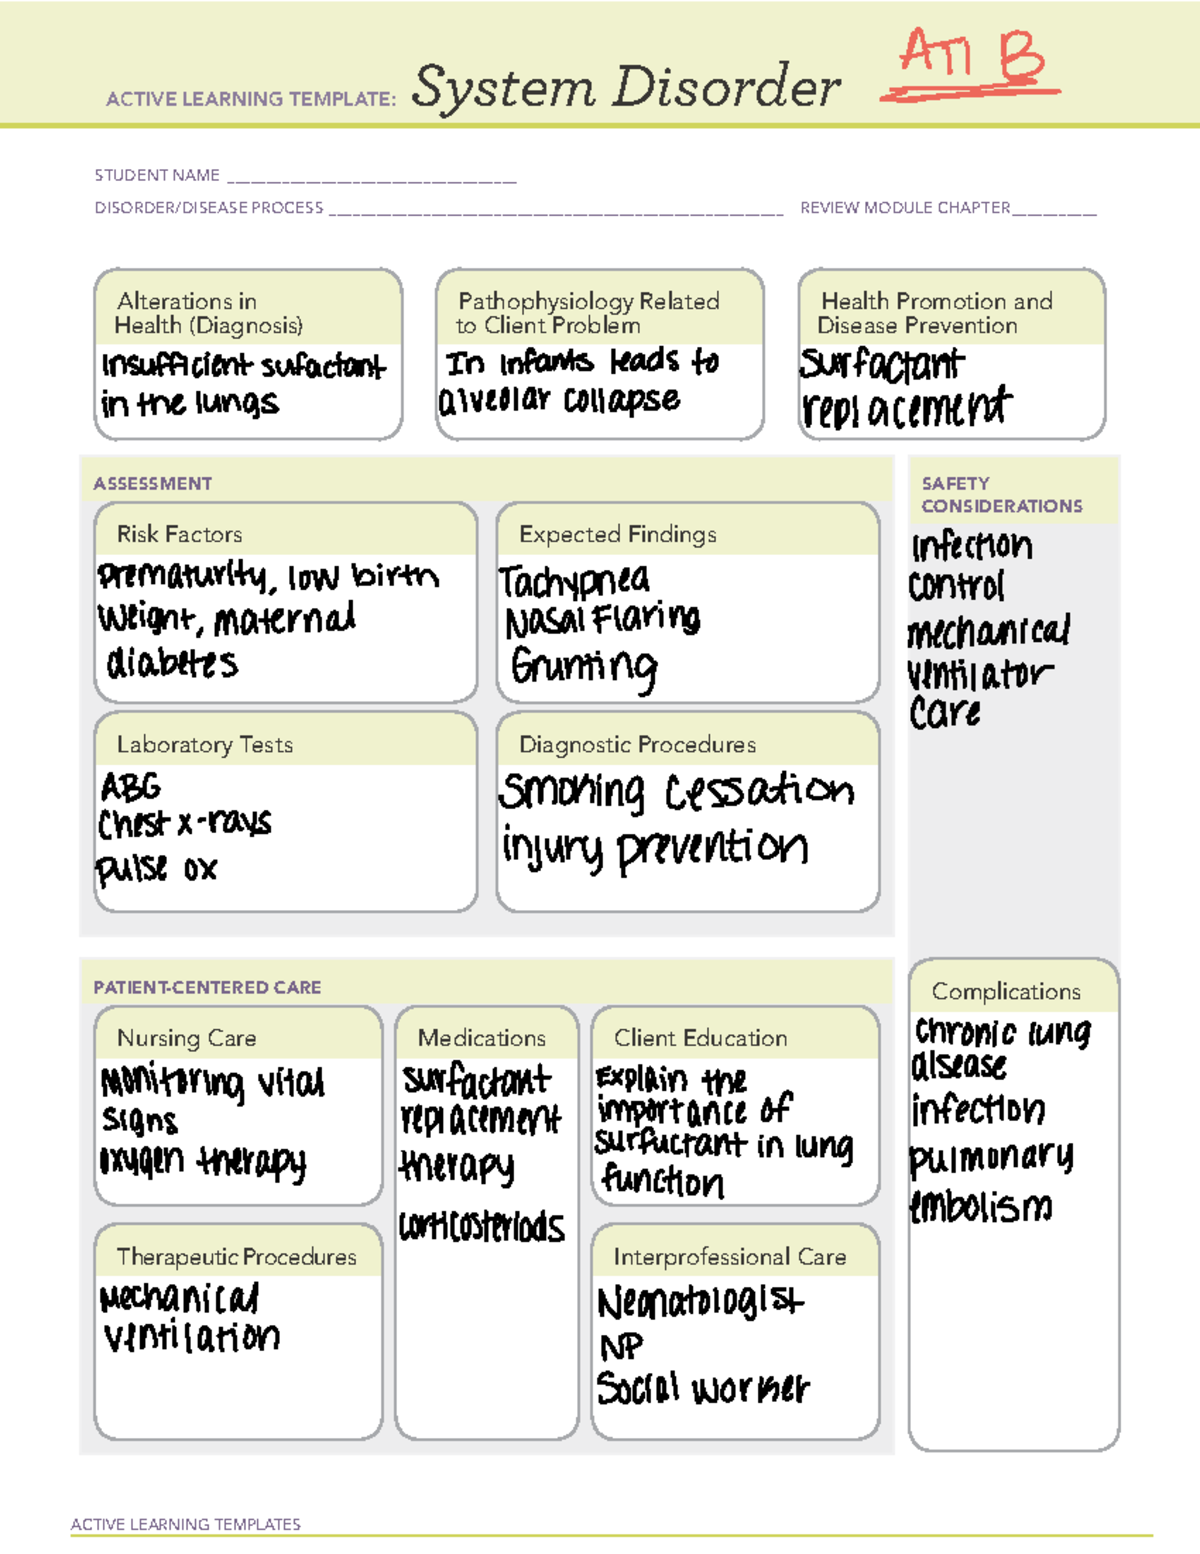 ATI B
ACTIVE LEARNING TEMPLATE: System Disorder
STUDENT NAME
DISORDER/DISEASE PROCESS REVIEW MODULE CHAPTER
Alterations in
Health (Diagnosis)
Insufficient sufactant
in the lungs
Pathophysiology Related
to Client Problem
In infants leads to
alveolar collapse
Health Promotion and
Disease Prevention
Surfactant
replacement
ASSESSMENT
Risk Factors
Prematurity, low birth
weight, maternal
diabetes
Expected Findings
Tachypnea
Nasal Flaring
Grunting
Laboratory Tests
ABG
Chest x-rays
pulse ox
Diagnostic Procedures
Smoking cessation
injury prevention
SAFETY
CONSIDERATIONS
infection
control
mechanical
ventilator
care
PATIENT-CENTERED CARE
Nursing Care
Monitoring vital
signs
oxygen therapy
Medications
surfactant
replacement
therapy
corticosteriods
Client Education
Explain the
importance of
surfuctant in lung
function
Therapeutic Procedures
Mechanical
ventilation
Interprofessional Care
Neonatologist
NP
Social worker
Complications
chronic lung
disease
infection
pulmonary
embolism
ACTIVE LEARNING TEMPLATES